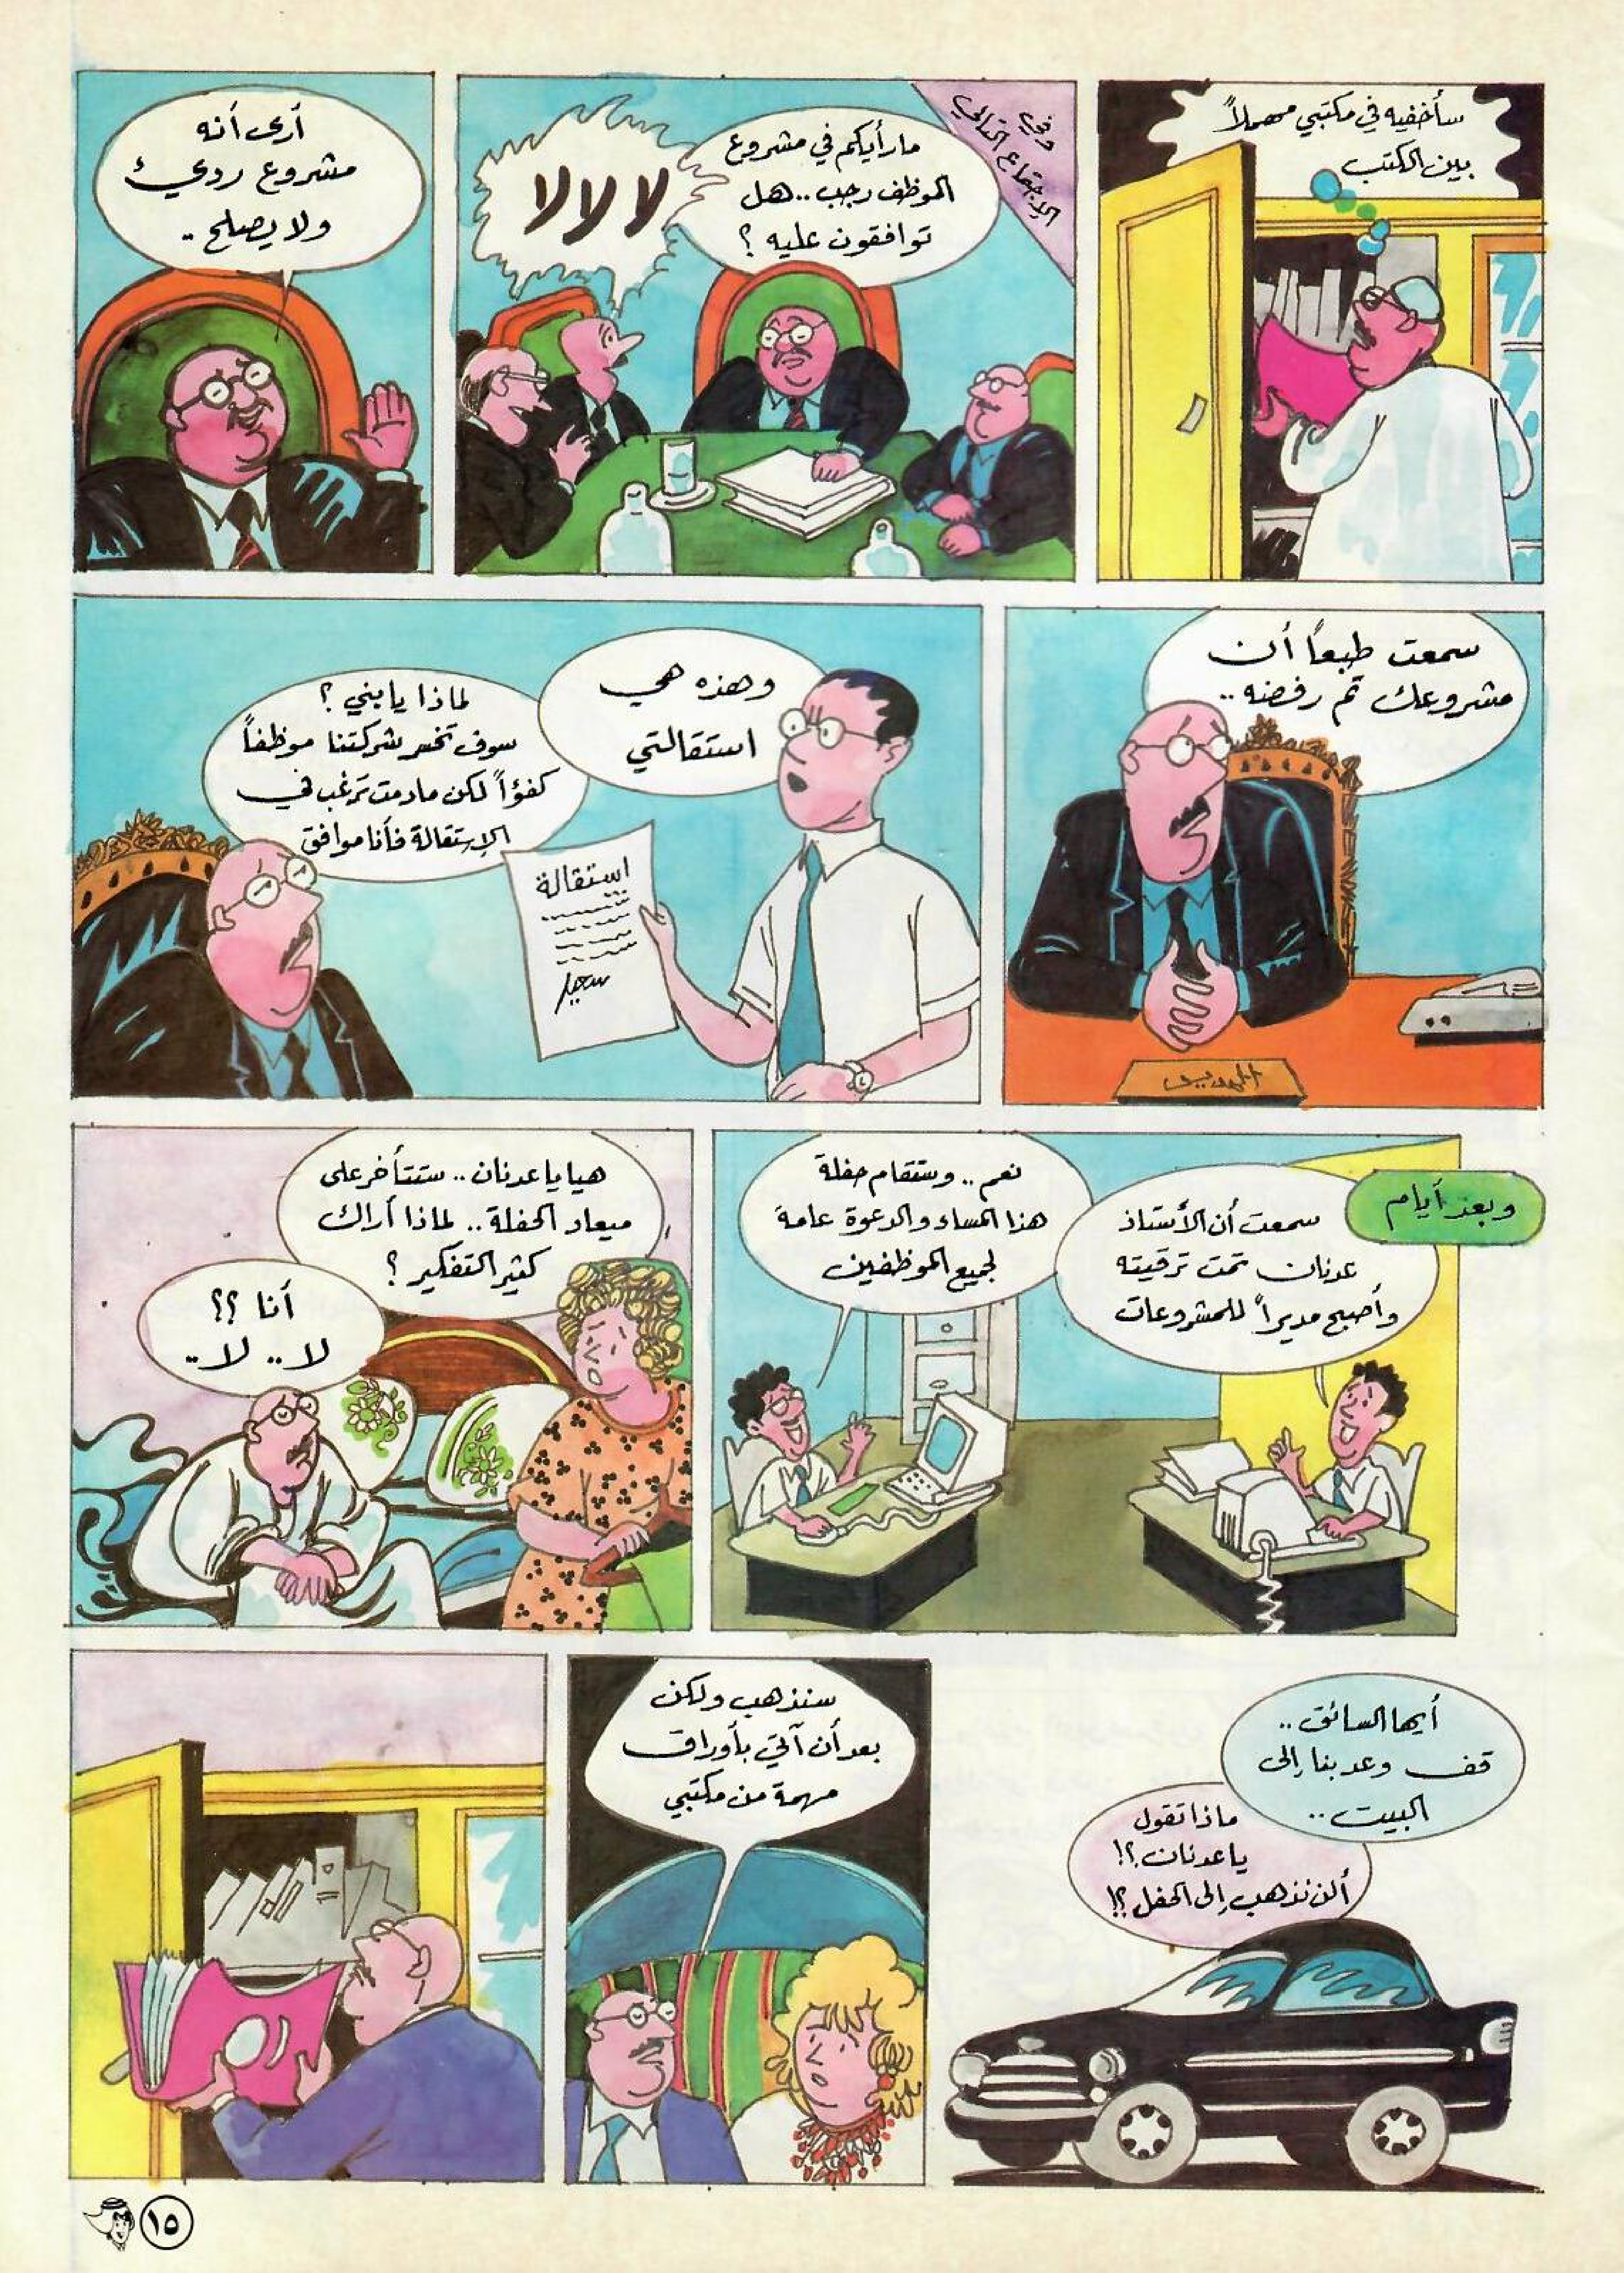 سأخفيه في مكتبي مهملاً
بين الكتب
وفي
الاجتماع التالي
ما رأيكم في مشروع
الموظف رجب .. هل
توافقون عليه ؟
لا لا لا
أرى أنه
مشروع رديء
ولا يصلح ..
سمعت طبعاً أن
مشروعك تم رفضه ..
المدير
وهذه هي
استقالتي
استقالة
سعيد
لماذا يا بني ؟
سوف تخسر شركتنا موظفاً
كفؤاً لكن مادمت ترغب في
الإستقالة فأنا موافق
وبعد أيام
سمعت أن الأستاذ
عدنان تمت ترقيته
وأصبح مديراً للمشروعات
نعم .. وستقام حفلة
هذا المساء والدعوة عامة
لجميع الموظفين
هيا يا عدنان .. ستتأخر على
ميعاد الحفلة .. لماذا أراك
كثير التفكير ؟
أنا ؟؟
لا .. لا ..
أيها السائق ..
قف وعد بنا إلى
البيت ..
ماذا تقول
يا عدنان ؟!
ألن نذهب إلى الحفل ؟!
سنذهب ولكن
بعد أن آتي بأوراق
مهمة من مكتبي
١٥